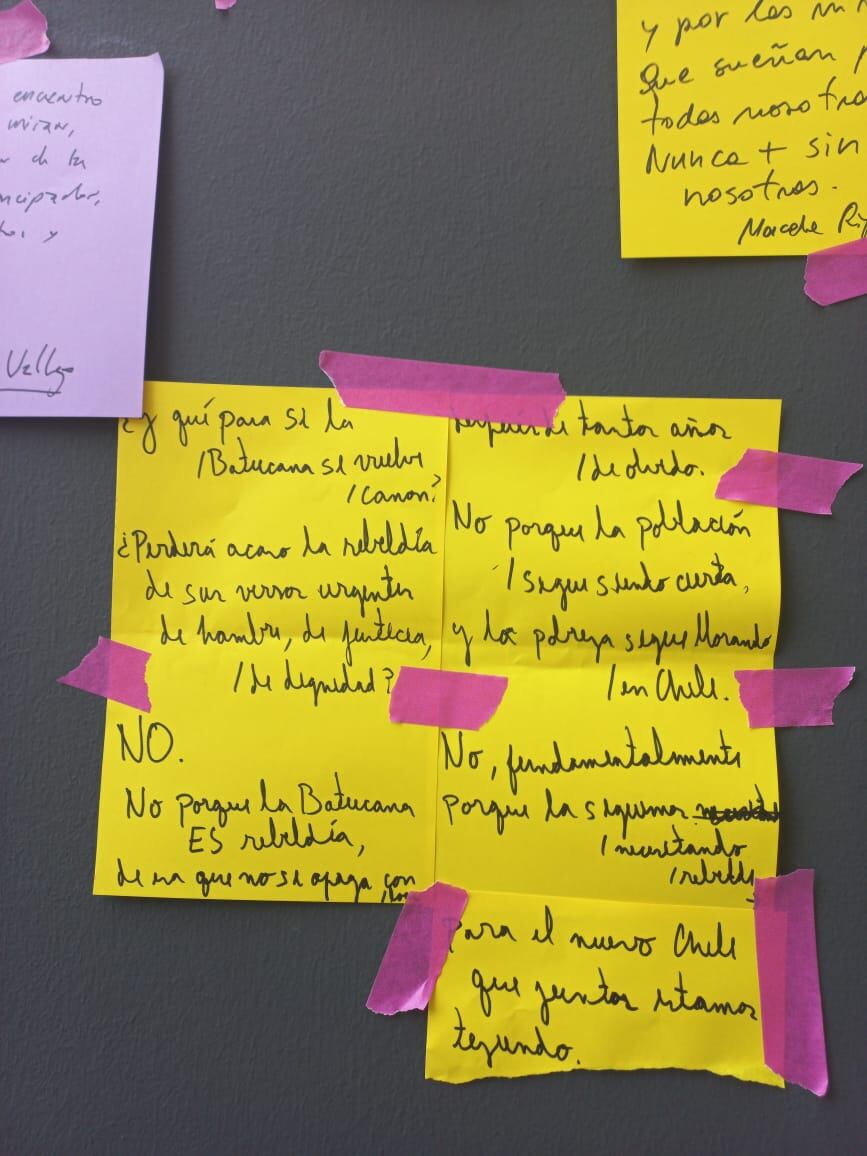 encuentro
mirar,
de la
y
Vallejo
y por las
Que sueñan
todas nosotras
Nunca + sin
nosotras.
¿y qué pasa si la
/Batucana se vuelve
/canon?
¿Perderá acaso la rebeldía
de sus versos urgentes
de hambre, de justicia,
/de dignidad?
NO.
No porque la Batucana
ES rebeldía,
de esa que no se apaga con
/los
después de tantos años
/de olvido.
No porque la población
/sigue siendo cierta,
y la pobreza sigue llorando
/en Chile.
No, fundamentalmente
porque la seguimos
/necesitando
/rebelde
Para el nuevo Chile
que juntos estamos
tejiendo.